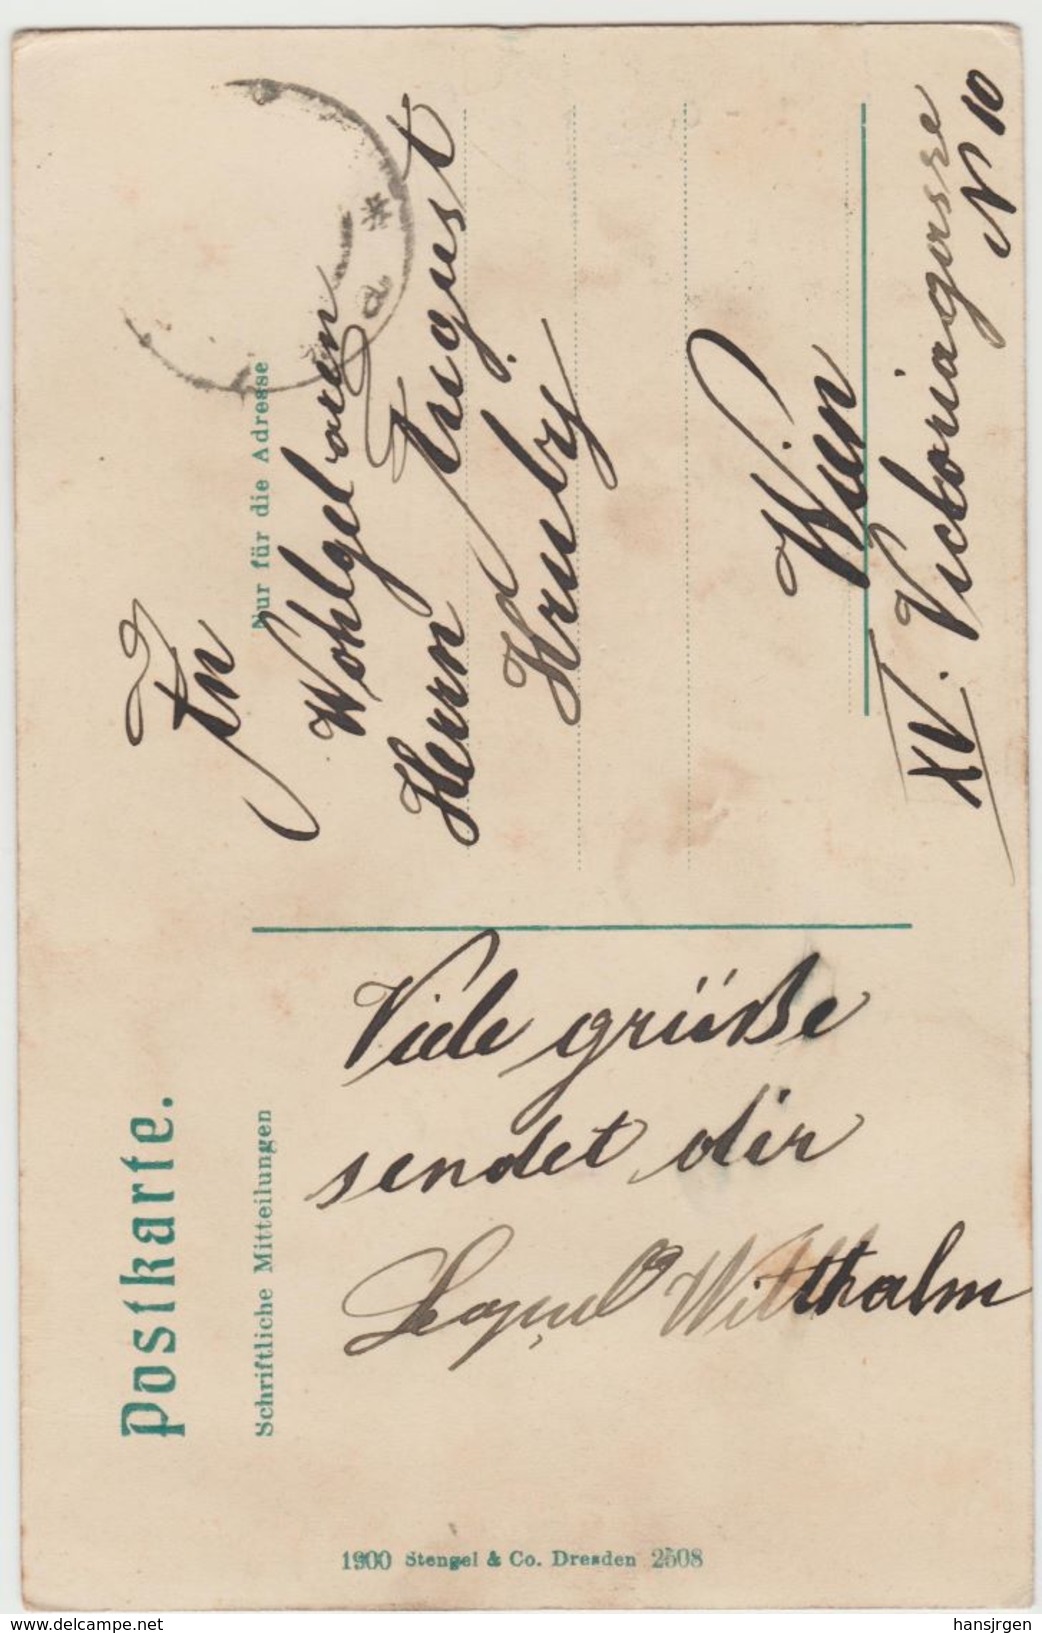 Postkarte.
Schriftliche Mitteilungen
Nur für die Adresse
Viele grüße
sendet dir
Witthalm
An
Wohlgeboren
Herrn August
Hruby
Wien
XV. Vicktoriagasse
N 10
1900 Stengel & Co. Dresden 2508
www.delcampe.net
hansjrgen